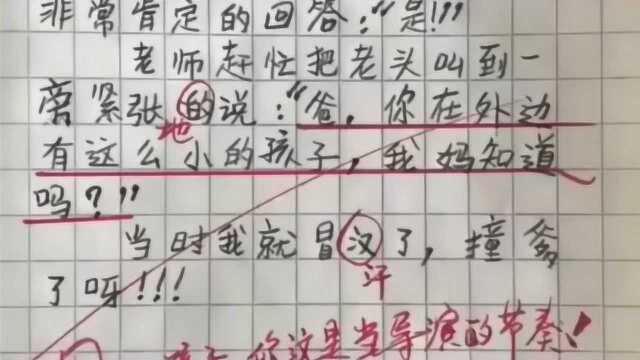 非常肯定的回答:“是!”
老师赶忙把老头叫到一
旁紧张的说:“爸,你在外边
地
有这么小的孩子,我妈知道
吗?”
当时我就冒汉了,撞爹
汗
了呀!!!
孩子,你这是当导演的节奏!